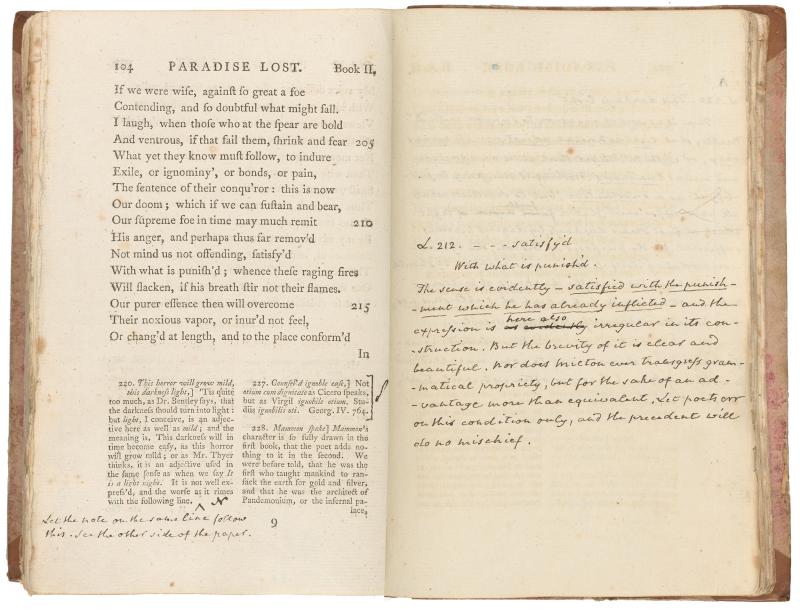 104 PARADISE LOST. Book II.
If we were wiſe, againſt ſo great a foe
Contending, and ſo doubtful what might fall.
I laugh, when thoſe who at the ſpear are bold
And ventrous, if that fail them, ſhrink and fear 205
What yet they know muſt follow, to indure
Exile, or ignominy', or bonds, or pain,
The ſentence of their conqu'ror: this is now
Our doom; which if we can ſuſtain and bear,
Our ſúpreme foe in time may much remit 210
His anger, and perhaps thus far remov'd
Not mind us not offending, ſatisfy'd
With what is puniſh'd; whence theſe raging fires
Will ſlacken, if his breath ſtir not their flames.
Our purer eſſence then will overcome 215
Their noxious vapor, or inur'd not feel,
Or chang'd at length, and to the place conform'd
In
220. This horror will grow mild,
this darkneſs light,] 'Tis quite
too much, as Dr. Bentley ſays, that
the darkneſs ſhould turn into light:
but light, I conceive, is an adjec-
tive here as well as mild; and the
meaning is, This darkneſs will in
time become eaſy, as this horror
will grow mild; or as Mr. Thyer
thinks, it is an adjective uſed in
the ſame ſenſe as when we ſay It
is a light night. It is not well ex-
preſs'd, and the worſe as it rimes
with the following line.
227. Counſel'd ignoble eaſe,] Not
otium cum dignitate as Cicero ſpeaks,
but as Virgil ignobile otium, Stu-
diis ignobilis oti. Georg. IV. 764.
228. Mammon ſpake] Mammon's
character is ſo fully drawn in the
firſt book, that the poet adds no-
thing to it in the ſecond. We
were before told, that he was the
firſt who taught mankind to ran-
ſack the earth for gold and ſilver,
and that he was the architect of
Pandemonium, or the infernal pa-
lace,
Let the note on the same line follow
this. See the other side of the paper.
9
L. 212. - - - satisfy'd
With what is punish'd.
The sense is evidently – satisfied with the punish-
-ment which he has already inflicted – and the
here also
expression is as evidently irregular in its con-
-struction. But the brevity of it is clear and
beautiful. Nor does Milton ever transgress gram-
-matical propriety, but for the sake of an ad-
-vantage more than equivalent. Let poets err
on this condition only, and the precedent will
do no mischief.